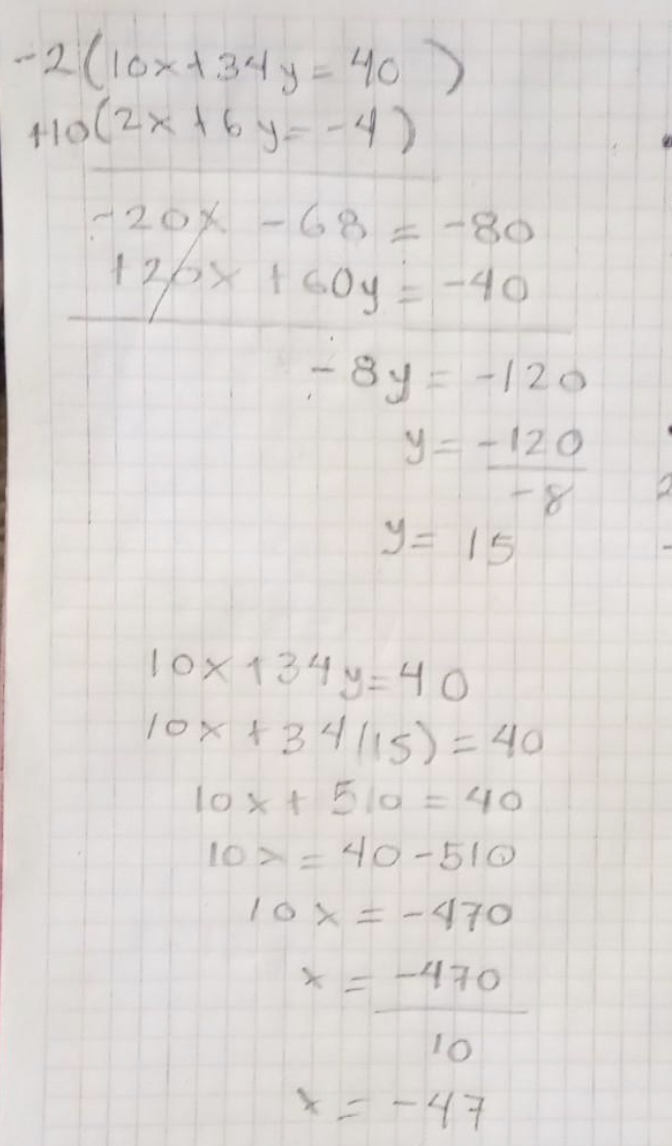 -2(10x+34y=40)
+10(2x+6y=-4)
-20x -68 = -80
+20x +60y = -40
-8y = -120
y = -120
-8
y = 15
10x+34y=40
10x+34(15)=40
10x+510=40
10x=40-510
10x=-470
x = -470
10
x = -47